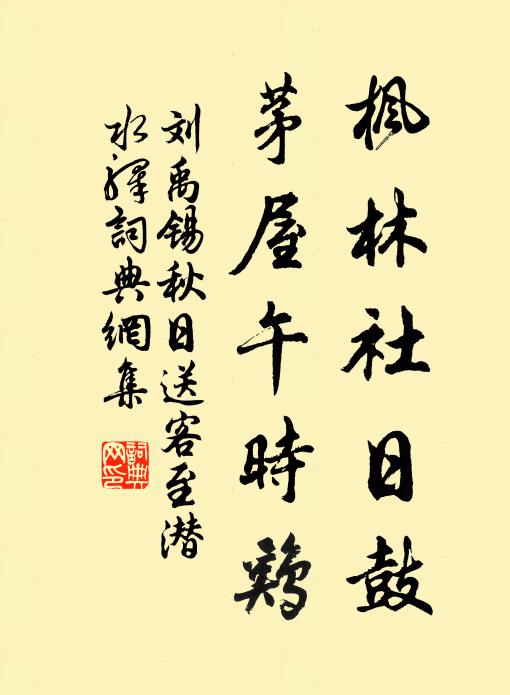 枫林社日鼓
茅屋午時鸡
刘禹锡秋日送客至潜
水驿詞典網集
詞典
网印